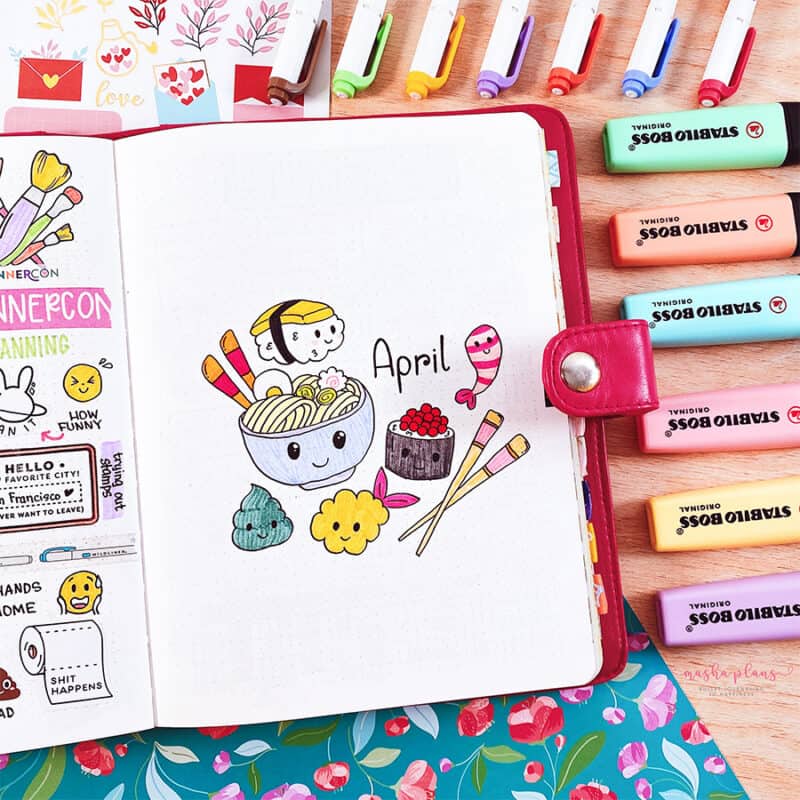 love
NNERCON
NNERCON
ANNING
HOW
FUNNY
HELLO •
FAVORITE CITY!
n Francisco
VER WANT TO LEAVE)
trying out
stamps
MILDLINER
HANDS
HOME
SHIT
HAPPENS
AD
April
STABILO BOSS
ORIGINAL
STABILO BOSS
ORIGINAL
STABILO BOSS
ORIGINAL
STABILO BOSS
ORIGINAL
STABILO BOSS
ORIGINAL
STABILO BOSS
ORIGINAL
masha plans
BULLET JOURNALING
TO HAPPINESS